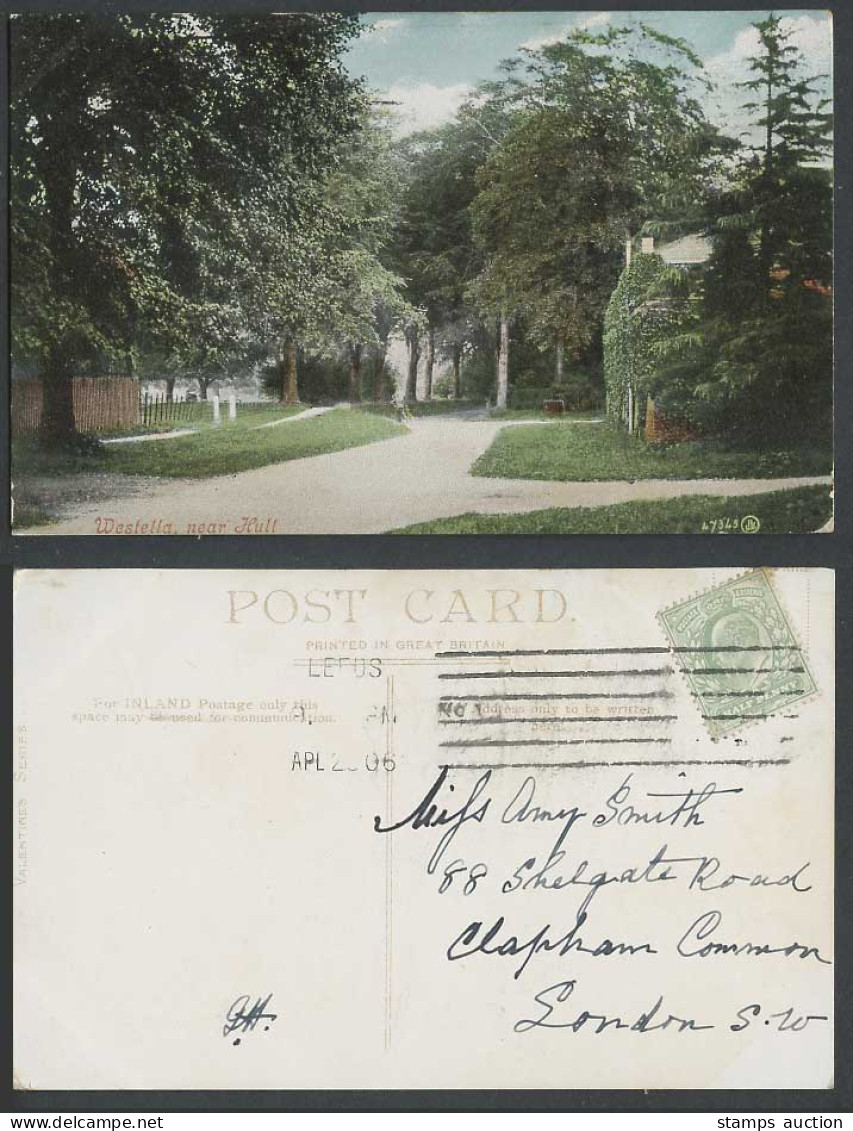 Westella, near Hull
47345 JV
POST CARD.
PRINTED IN GREAT BRITAIN
LEEDS
For INLAND Postage only this
space may be used for communication.
Address only to be written
here.
APL 2 06
VALENTINES SERIES
Miss Amy Smith
88 Shelgate Road
Clapham Common
London S.W
stamps auction